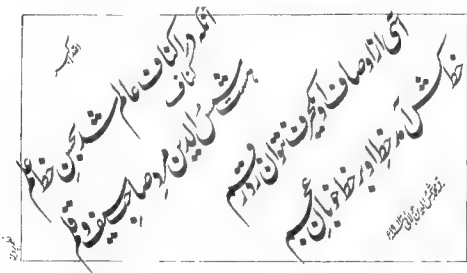 الله اکبر
آنکه در اکناف عالم شد بحسن خط علم
هست شمس الدین مرد صاحب سیف و قلم
از اوصاف او یکحرف نتوان زد رقم
خط کش آمد خط او بر خط خوبان عجم